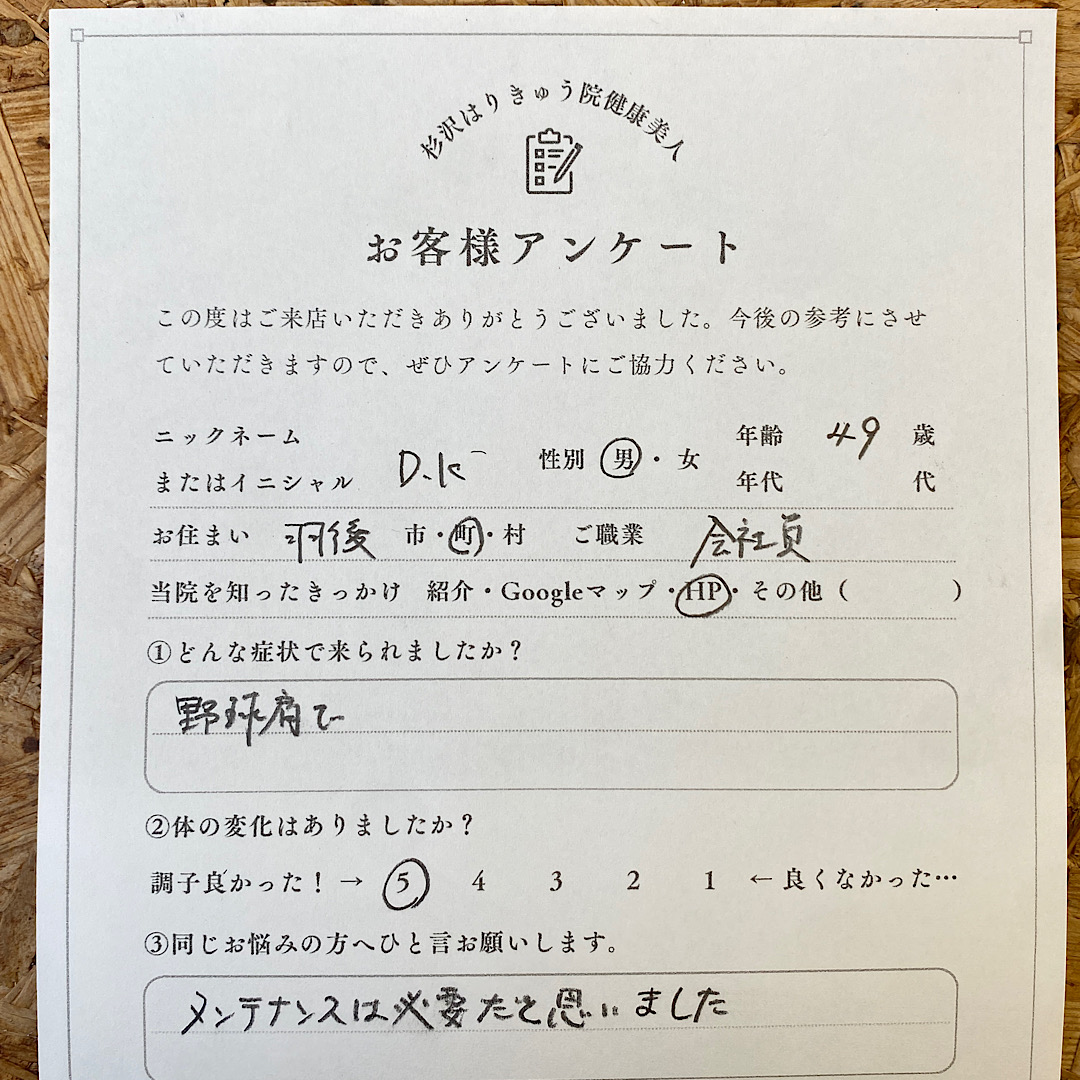 杉沢はりきゅう院健康美人
お客様アンケート
この度はご来店いただきありがとうございました。今後の参考にさせ
ていただきますので、ぜひアンケートにご協力ください。
ニックネーム
またはイニシャル D.K 性別 男・女 年齢 49 歳
年代 代
お住まい 羽後 市・町・村 ご職業 会社員
当院を知ったきっかけ 紹介・Googleマップ・HP・その他( )
①どんな症状で来られましたか?
野球肩で
②体の変化はありましたか?
調子良かった!→ 5 4 3 2 1 ←良くなかった…
③同じお悩みの方へひと言お願いします。
メンテナンスは必要だと思いました